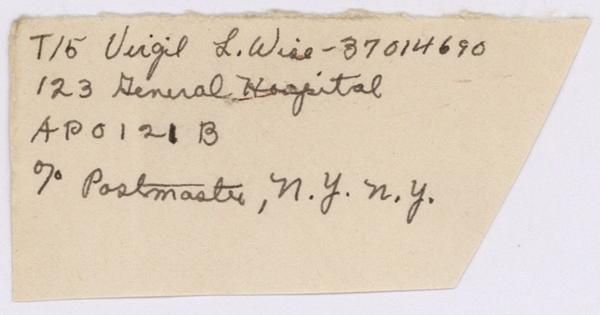 T/5 Virgil L. Wise - 37014690
123 General Hospital
APO 121 B
c/o Postmaster, N.Y. N.Y.